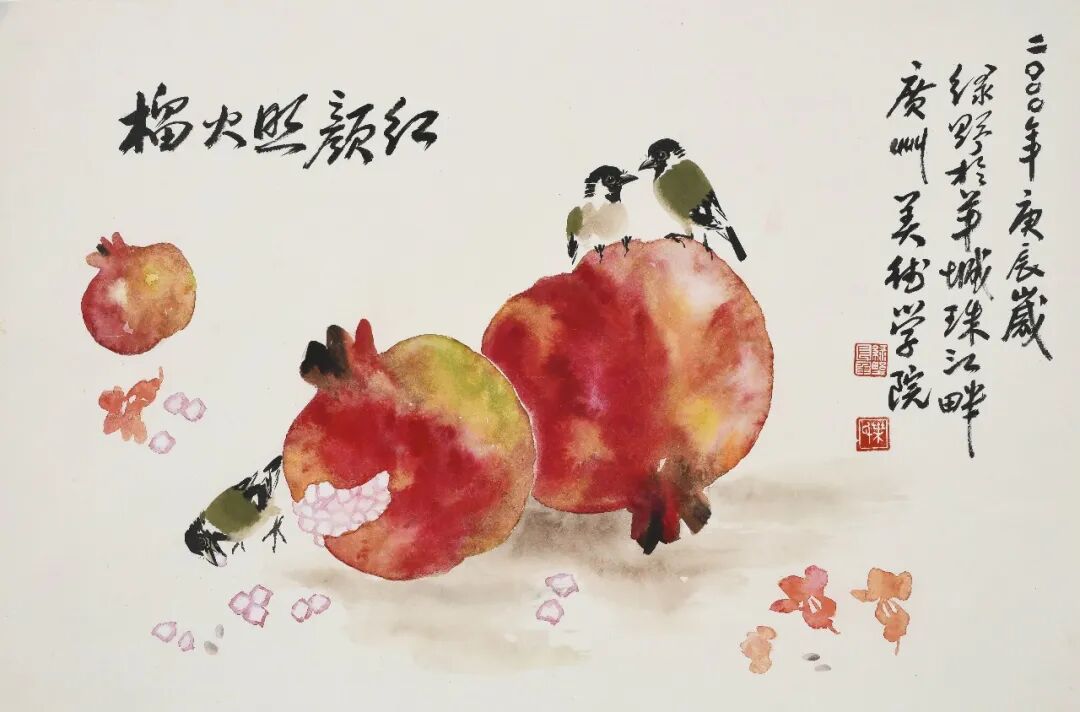 榴火照颜红
二〇〇〇年庚辰岁
绿野於羊城珠江畔
廣州美术学院